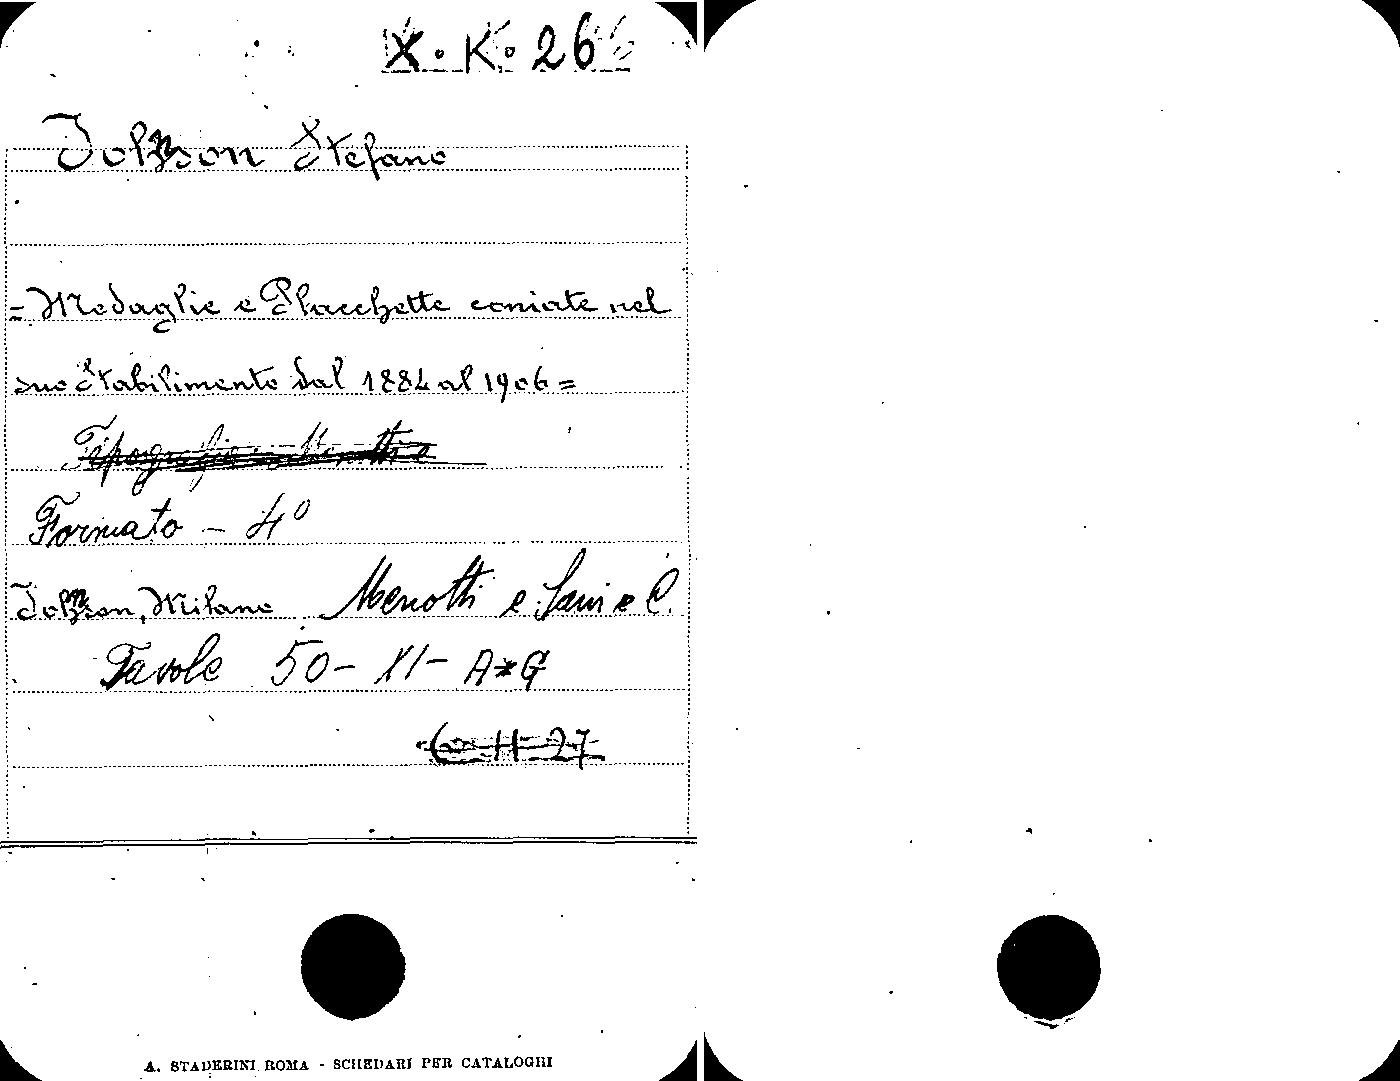 X. K. 26
Johnson Stefano
= Medaglie e Placchette coniate nel
suo Stabilimento dal 1884 al 1906 =
Tipografia Menotti e
Formato - 4º
Johnson, Milano Menotti e Sani e C.
Tavole 50 - XI - A * G
6 H 27
A. STADERINI ROMA - SCHEDARI PER CATALOGHI